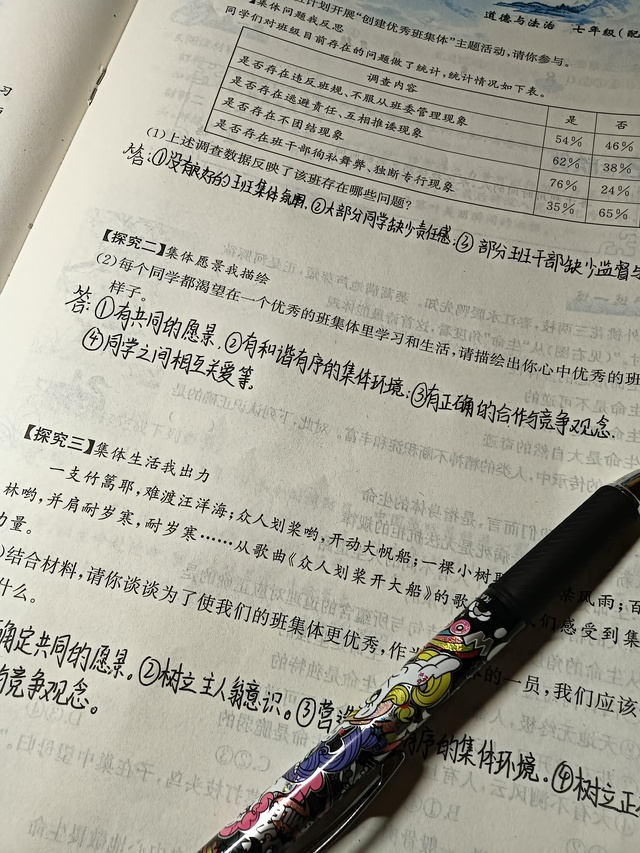 道德与法治 七年级(配
计划开展“创建优秀班集体”主题活动,请你参与。
集体问题我反思
同学们对班级目前存在的问题做了统计,统计情况如下表。
调查内容 是 否
是否存在违反班规、不服从班委管理现象 54% 46%
是否存在逃避责任、互相推诿现象 62% 38%
是否存在不团结现象 76% 24%
是否存在班干部徇私舞弊、独断专行现象 35% 65%
(1)上述调查数据反映了该班存在哪些问题?
答:①没有良好的班集体氛围.②大部分同学缺少责任感;③部分班干部缺少监督与
【探究二】集体愿景我描绘
(2)每个同学都渴望在一个优秀的班集体里学习和生活,请描绘出你心中优秀的班
样子。
答:①有共同的愿景.②有和谐有序的集体环境;③有正确的合作与竞争观念.
④同学之间相互关爱等.
【探究三】集体生活我出力
一支竹篙耶,难渡汪洋海;众人划桨哟,开动大帆船;一棵小树
林哟,并肩耐岁寒,耐岁寒……从歌曲《众人划桨开大船》的歌
们感受到集
力量。
)结合材料,请你谈谈为了使我们的班集体更优秀,作
的一员,我们应该
什么。
确定共同的愿景。②树立主人翁意识。③营
有序的集体环境.④树立正
与竞争观念。